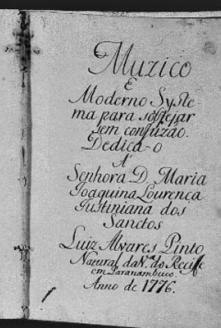 Muzico
E
Moderno Syste
ma para solfejar
sem confuzão.
Dedica-o
A'
Senhora D. Maria
Joaquina Lourença
Justiniana dos
Sanctos
Luiz Alvares Pinto
Natural da V.ª do Reciffe
em Paranambuco.
Anno de 1776.